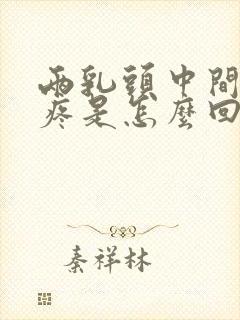 兩乳頭中間
疼是怎麼回
秦祥林